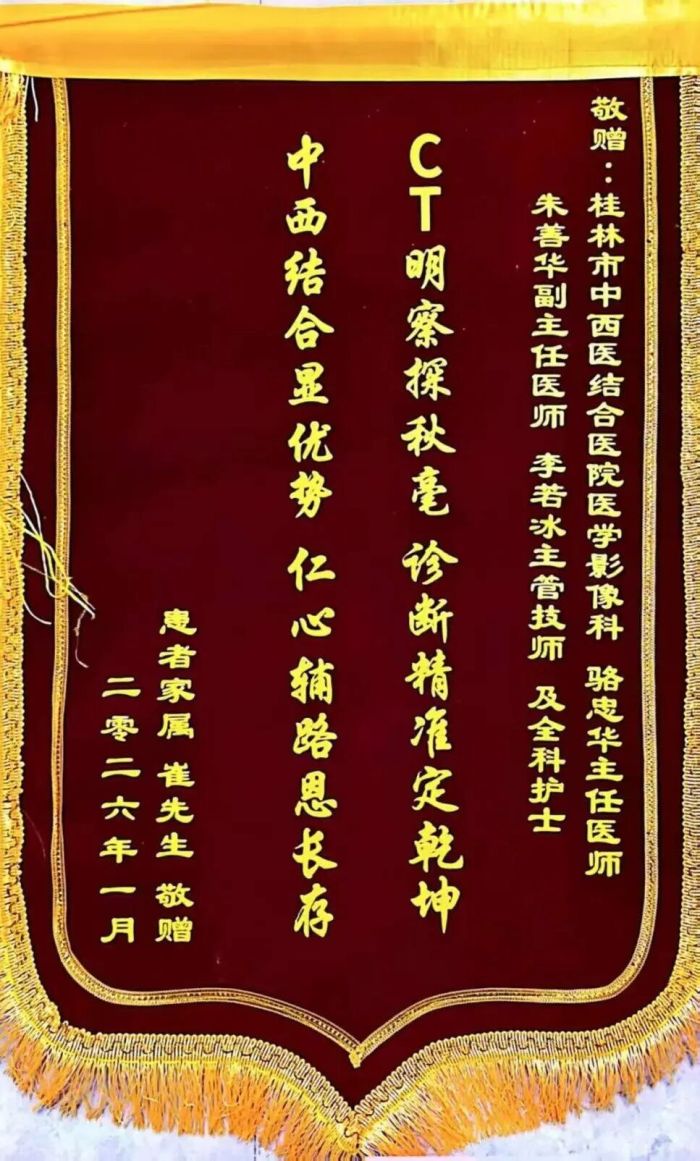 敬赠：桂林市中西医结合医院医学影像科 骆忠华主任医师
朱善华副主任医师 李若冰主管技师 及全科护士
CT明察探秋毫 诊断精准定乾坤
中西结合显优势 仁心辅路恩长存
患者家属 崔先生 敬赠
二零二六年一月